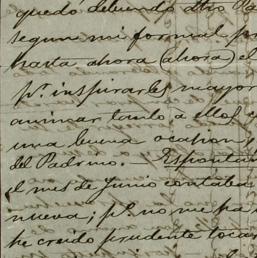 quedó debiendo otro Pa
segun mi formal pr
hasta ahora (ahora) el
pª. inspirarles mayor
animar tanto a ellos
una buena ocasion,
del Padrino. — Espontan
el mes de Junio contaba
nueva; pº. no me ha
he creido prudente tocar